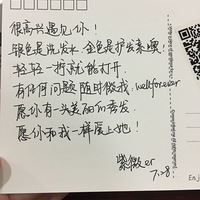 很高兴遇见你！
银色是洗发水 金色是护发素噢
轻轻一拧就能打开
有任何问题随时微我 wellforever
愿你有一头美丽的秀发
愿你和我一样爱上她！
紫微_er
7.28
Enj